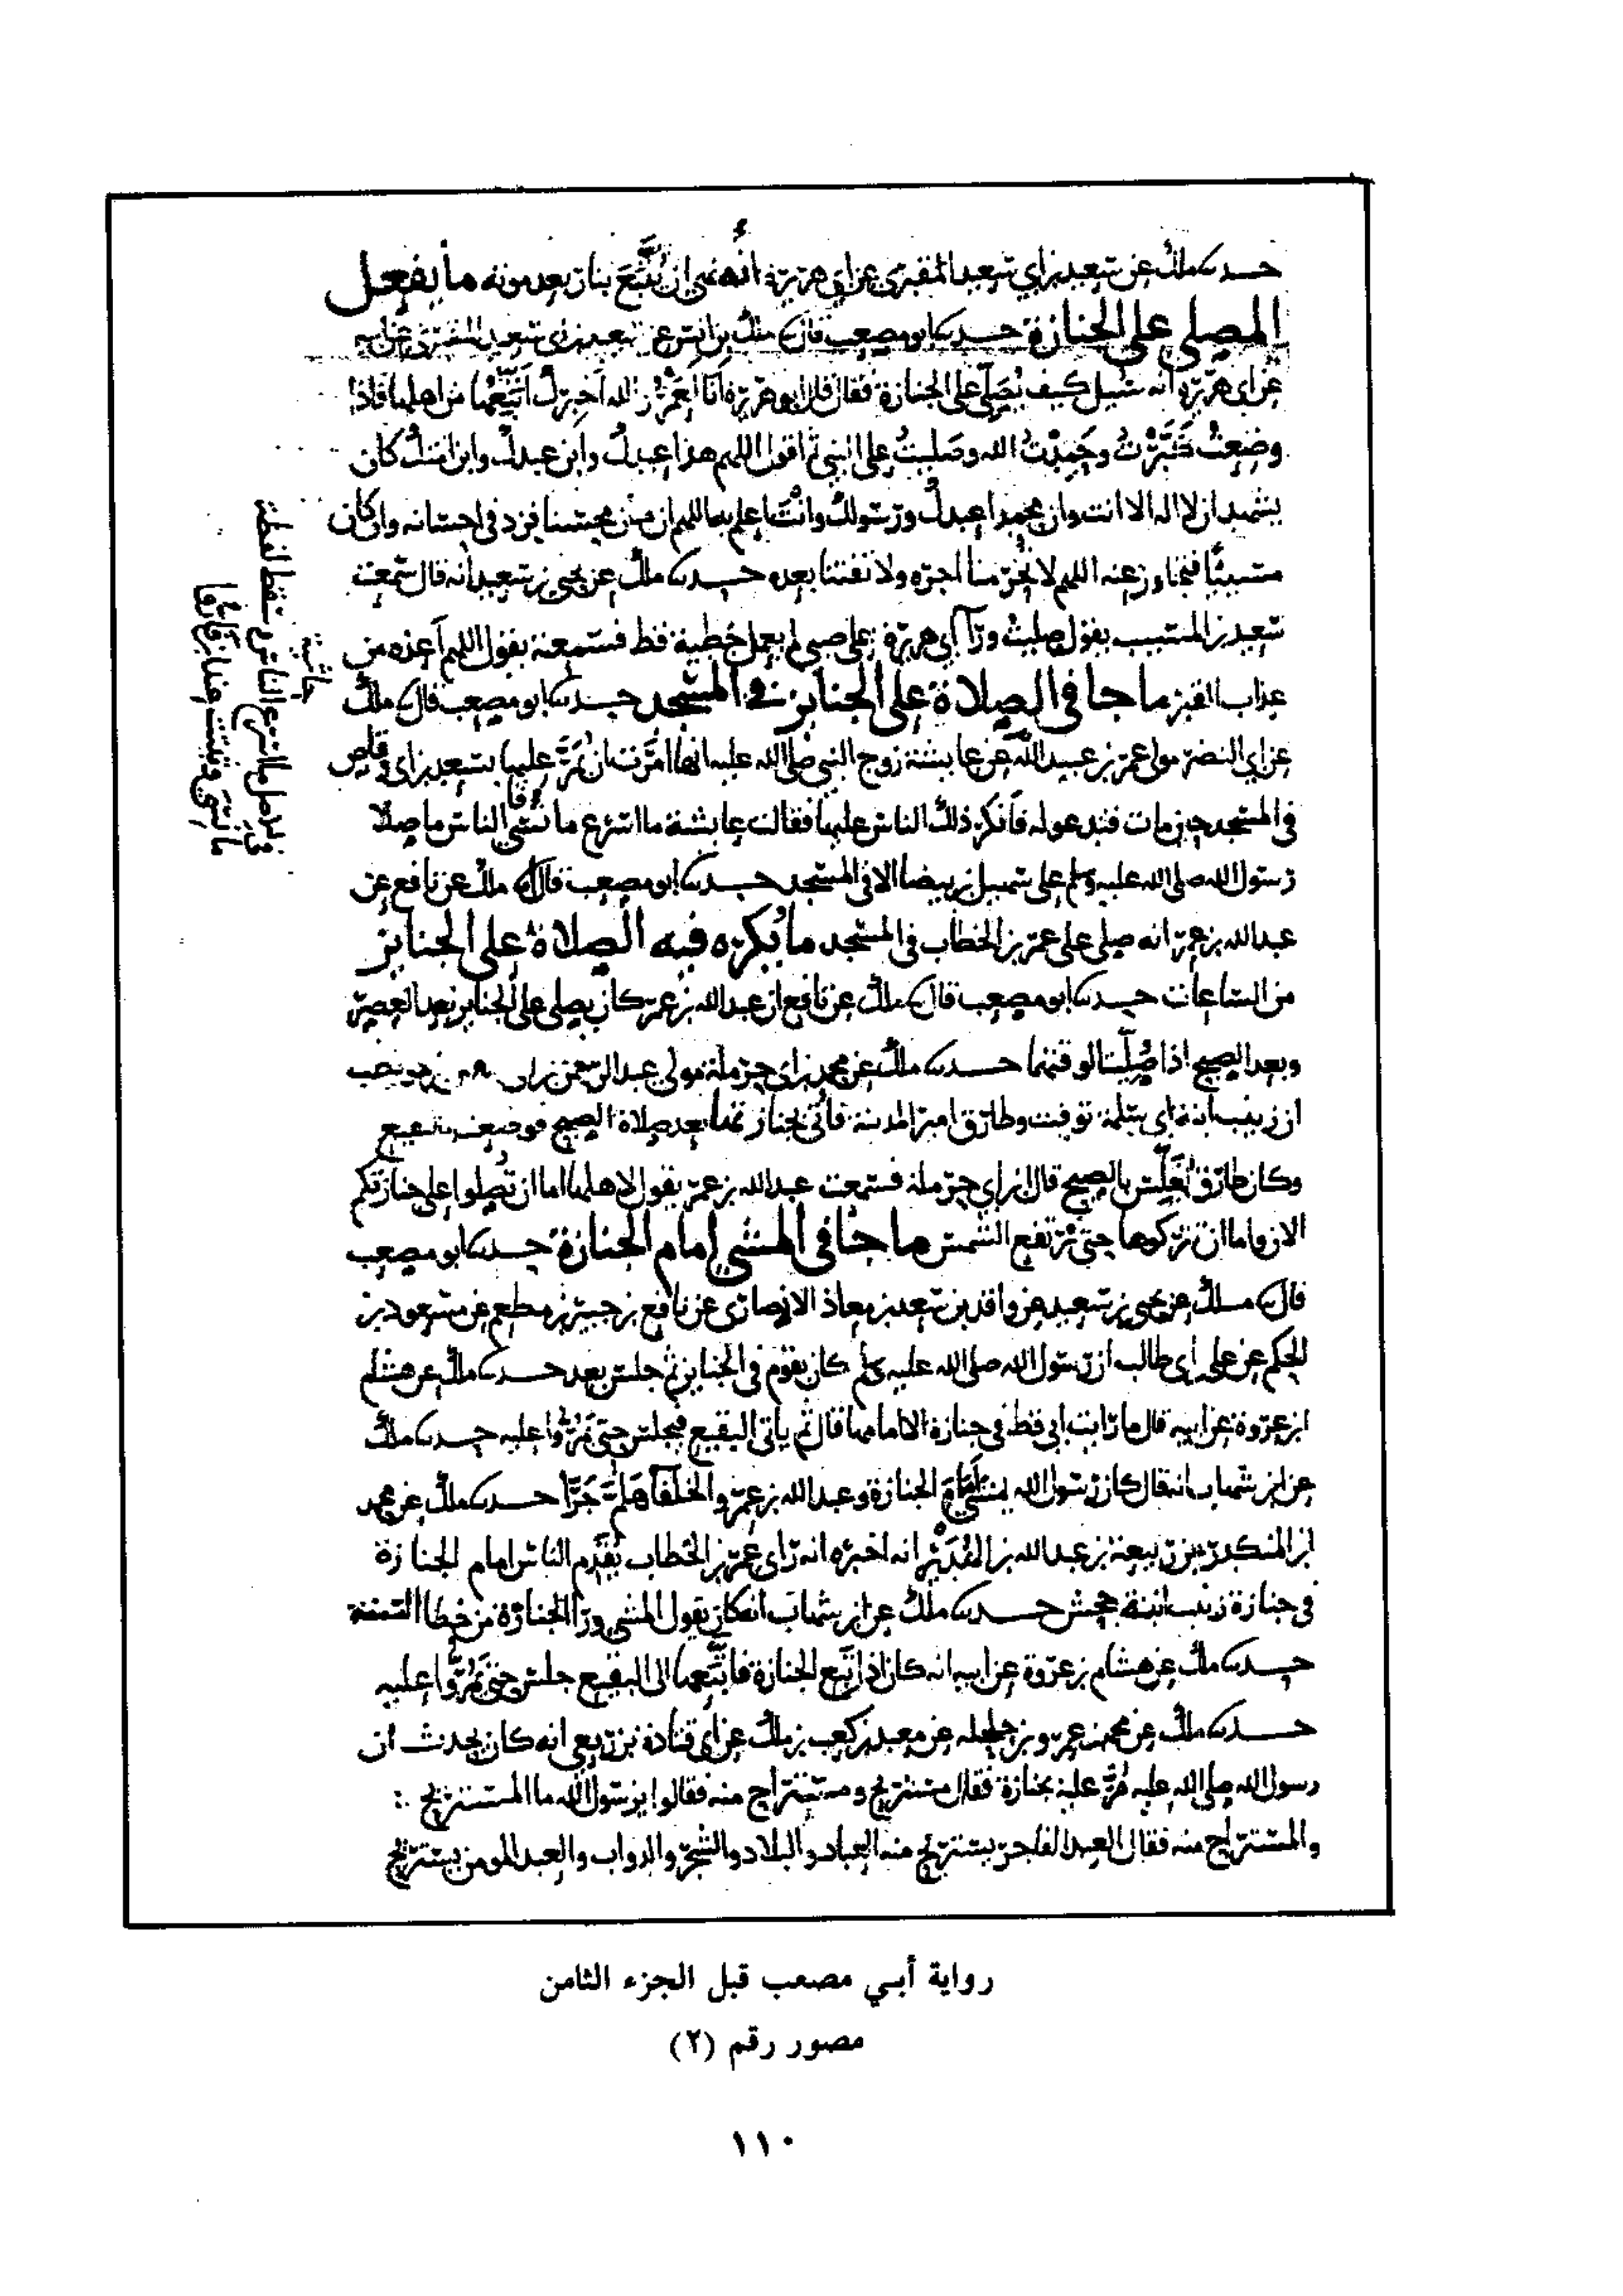 حدثنا ملك عن سعيد بن ابي سعيد المقبري عن ابي هريرة أنه نهى ان يُتَّبَعَ بنار بعد موته ما يفعل
المصلي على الجنازة حدثنا ابو مصعب قال نا ملك بن انس عن سعيد بن ابي سعيد المقبري عن ابيه
عن ابي هريرة انه سئل كيف يُصَلَّى على الجنازة فقال قال ابو هريرة انا لعمرُ الله اخبرك اتَّبِعُها من اهلها فاذا
وضعت كَبَّرْتُ وحَمِدْتُ الله وصَلَّيتُ على النبي ثم اقول اللهم هذا عبدك وابن عبدك وابن امتك كان
يشهد ان لا اله الا انت وان محمدا عبدك ورسولك وانت اعلم به اللهم ان كان محسنا فزد في احسانه وان كان
مسيئًا فتجاوز عنه اللهم لا تحرمنا اجره ولا تفتنا بعده حدثنا ملك عن يحيى بن سعيد انه قال سمعت
سعيد بن المسيب يقول صليت ورآ ابي هريرة على صبي لم يعمل خطية قط فسمعته يقول اللهم اعذه من
عذاب القبر ما جا في الصلاة على الجنايز في المسجد حدثنا ابو مصعب قال نا ملك
عن ابي النضر مولى عمر بن عبيد الله عن عايشة زوج النبي صلى الله عليه انها امرت ان يُمَرَّ عليها بسعد بن ابي وقاص
في المسجد حين مات فتدعو له فانكر ذلك الناس عليها فقالت عايشة ما اسرع ما نسي الناس ما صلا
رسول الله صلى الله عليه وسلم على سهيل بن بيضا الا في المسجد حدثنا ابو مصعب قال نا ملك عن نافع عن
عبد الله بن عمر انه صلي على عمر بن الخطاب في المسجد ما يُكره فيه الصلاة على الجنايز
من الساعات حدثنا ابو مصعب قال نا ملك عن نافع ان عبد الله بن عمر كان يصلي على الجنايز بعد العصر
وبعد الصبح اذا صُلِّيَتا لوقتهما حدثنا ملك عن محمد بن ابي حرملة مولى عبد الرحمن بن ابي
ان زينب ابنة ابي سلمة توفيت وطارق امير المدينة فأُتي بجنازتها بعد صلاة الصبح فوضعت بالبقيع
وكان طارق يُغَلِّس بالصبح قال ابن ابي حرملة فسمعت عبد الله بن عمر يقول لاهلها اما ان تُصلوا على جنازتكم
الان واما ان تتركوها حتى ترتفع الشمس ما جا في المشي امام الجنازة حدثنا ابو مصعب
قال نا ملك عن يحيى بن سعيد عن واقد بن سعد بن معاذ الانصاري عن نافع بن جبير بن مطعم عن مسعود بن
الحكم عن علي بن ابي طالب ان رسول الله صلى الله عليه وسلم كان يقوم في الجنايز ثم جلس بعد حدثنا ملك عن هشام
ابن عروة عن ابيه قال ما رايت ابي قط في جنازة الا امامها قال ثم ياتي البقيع فيجلس حتى يَمُرُّوا عليه حدثنا ملك
عن ابن شهاب انه قال كان رسول الله يمشي امام الجنازة وعبد الله بن عمر والخلفا هَلُمَّ جَرّا حدثنا ملك عن محمد
ابن المنكدر عن ربيعة بن عبد الله بن الهُدَيْر انه اخبره انه راى عمر بن الخطاب يَقْدُم الناس امام الجنازة
في جنازة زينب ابنة جحش حدثنا ملك عن ابن شهاب انه كان يقول المشي ورا الجنازة من خطا السنة
حدثنا ملك عن هشام بن عروة عن ابيه انه كان اذا تبع الجنازة فاتَّبعها الى البقيع جلس حتى يَمُرُّوا عليه
حدثنا ملك عن محمد بن عمرو بن حلحله عن معبد بن كعب بن ملك عن ابي قتادة بن ربعي انه كان يحدث ان
رسول الله صلى الله عليه مُرَّ عليه بجنازة فقال مستريح ومستراح منه فقالوا يرسول الله ما المستريح
والمستراح منه فقال العبد الفاجر يستريح منه العباد والبلاد والشجر والدواب والعبد المومن يستريح
في الاصل ما اسرع الناس سقط لفظة
ما نسي
رواية أبي مصعب قبل الجزء الثامن
مصور رقم (٢)
١١٠